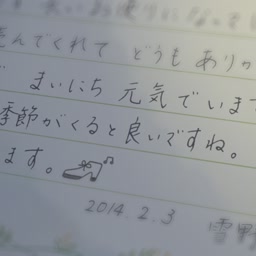 でくれて どうも ありが
まいにち 元気でいます
季節がくると良いですね。
ます。
2014.2.3
雪野